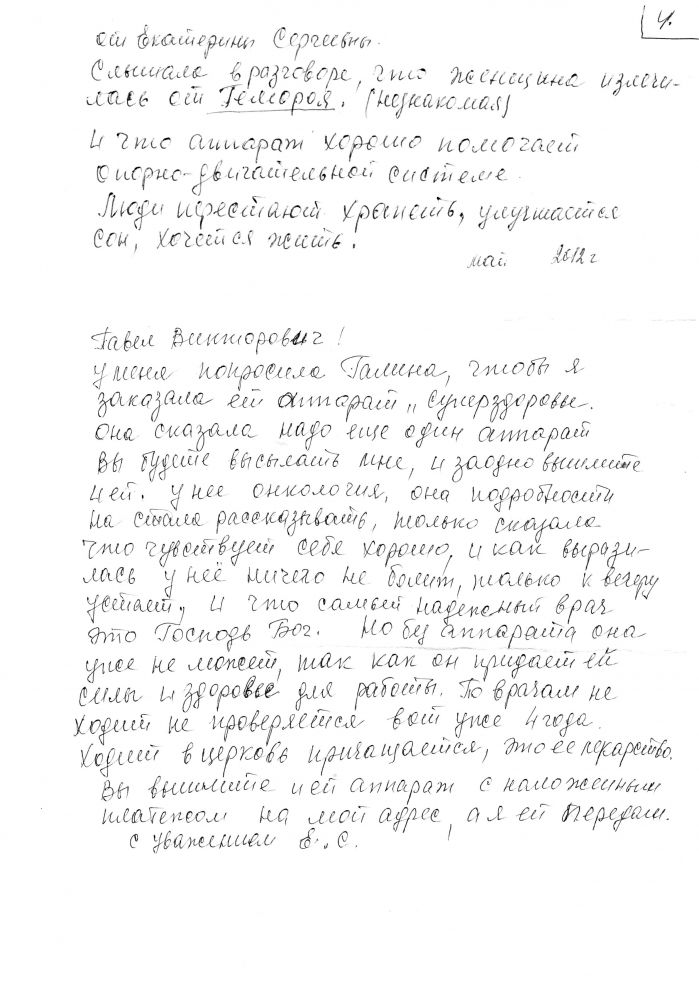 4.
от Екатерины Сергеевны.
Слышала в разговоре, что женщина излечи-
лась от Геморроя. (незнакомая)
И что аппарат хорошо помогает
опорно-двигательной системе.
Люди перестают храпеть, улучшается
сон, хочется жить.
май 2012 г
Павел Викторович!
у меня попросила Галина, чтобы я
заказала ей аппарат „Суперздоровье.
Она сказала надо еще один аппарат
Вы будете высылать мне, и заодно вышлите
и ей. У нее онкология, она подробности
не стала рассказывать, только сказала
что чувствует себя хорошо, и как вырази-
лась у неё ничего не болит, только к вечеру
устает, и что самый надежный врач
это Господь Бог. Но без аппарата она
уже не может, так как он придает ей
силы и здоровье для работы. По врачам не
ходит не проверяется вот уже 4 года.
Ходит в церковь причащается, это ее лекарство.
Вы вышлите и ей аппарат с наложенным
платежом на мой адрес, а я ей передам.
с уважением Е.С.